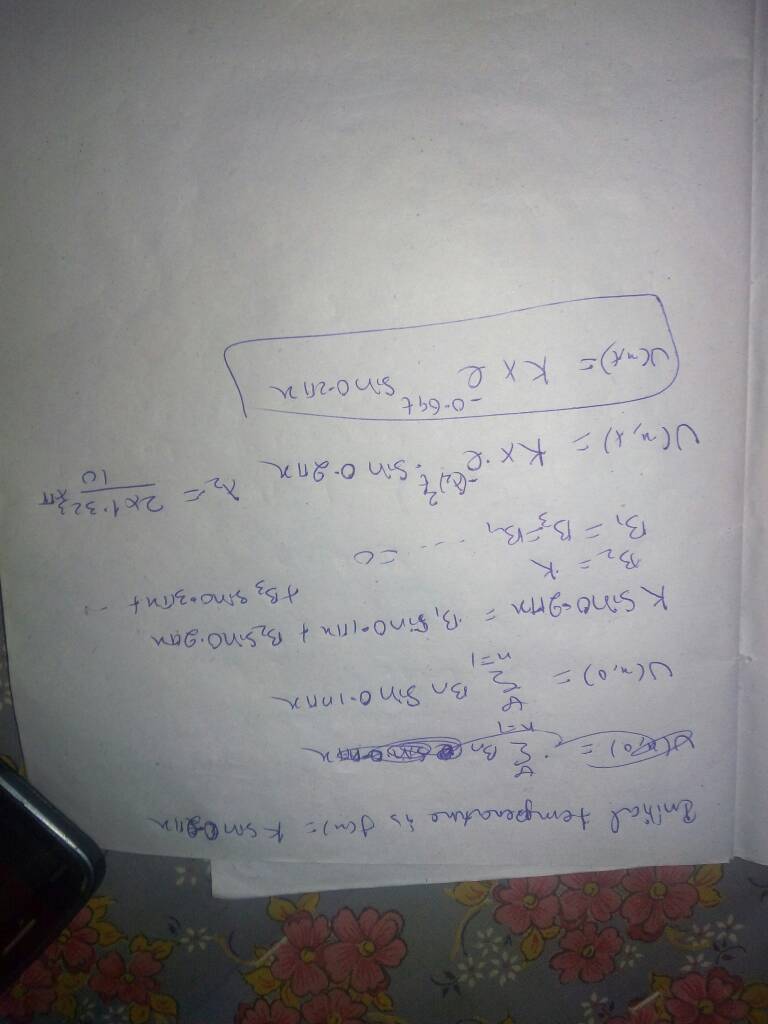 Initial temperature is f(x) = k sin 0.2πx
U(x,0) = ∞ Σ n=1 Bn
U(x,0) = ∞ Σ n=1 Bn sin 0.1nπx
k sin 0.2πx = B₁ sin 0.1πx + B₂ sin 0.2πx
+ B₃ sin 0.3πx + ...
B₂ = k
B₁ = B₃ = B₄ .... = 0
U(x,t) = k × e^-(λ₂)²t . sin 0.2πx λ₂ = 2×1.323×π / 10
U(x,t) = k × e^-0.69t sin 0.2πx